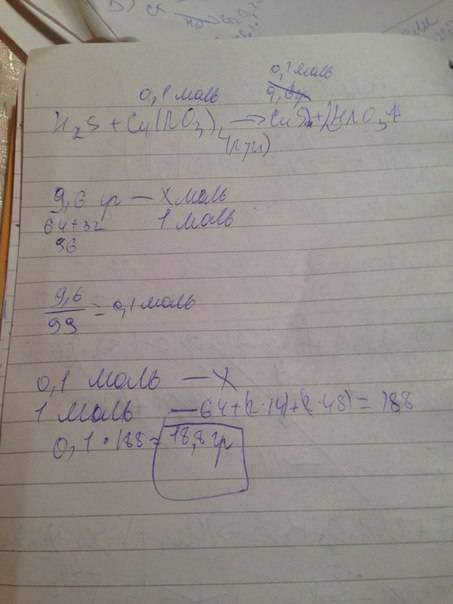 0,1 моль
0,1 моль
9,6 гр
H₂S + Cu(NO₃)₂ → CuS↓ + 2HNO₃
9,6 гр — x моль
64+32 1 моль
96
9,6/99 = 0,1 моль
0,1 моль — x
1 моль — 64+(2·14)+(2·48) = 188
0,1 · 188 = 18,8 гр